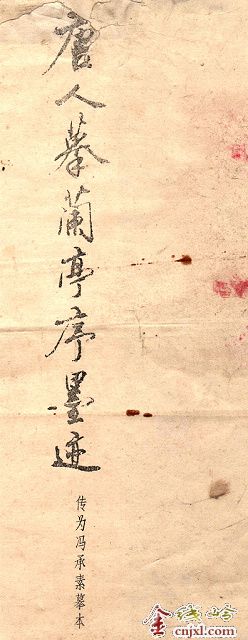 唐人摹蘭亭序墨迹
传为冯承素摹本
金线岭
cnjxl.com